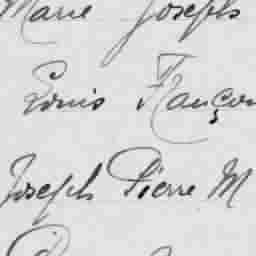 Marie Joseph
Louis Françoi
Joseph Pierre M